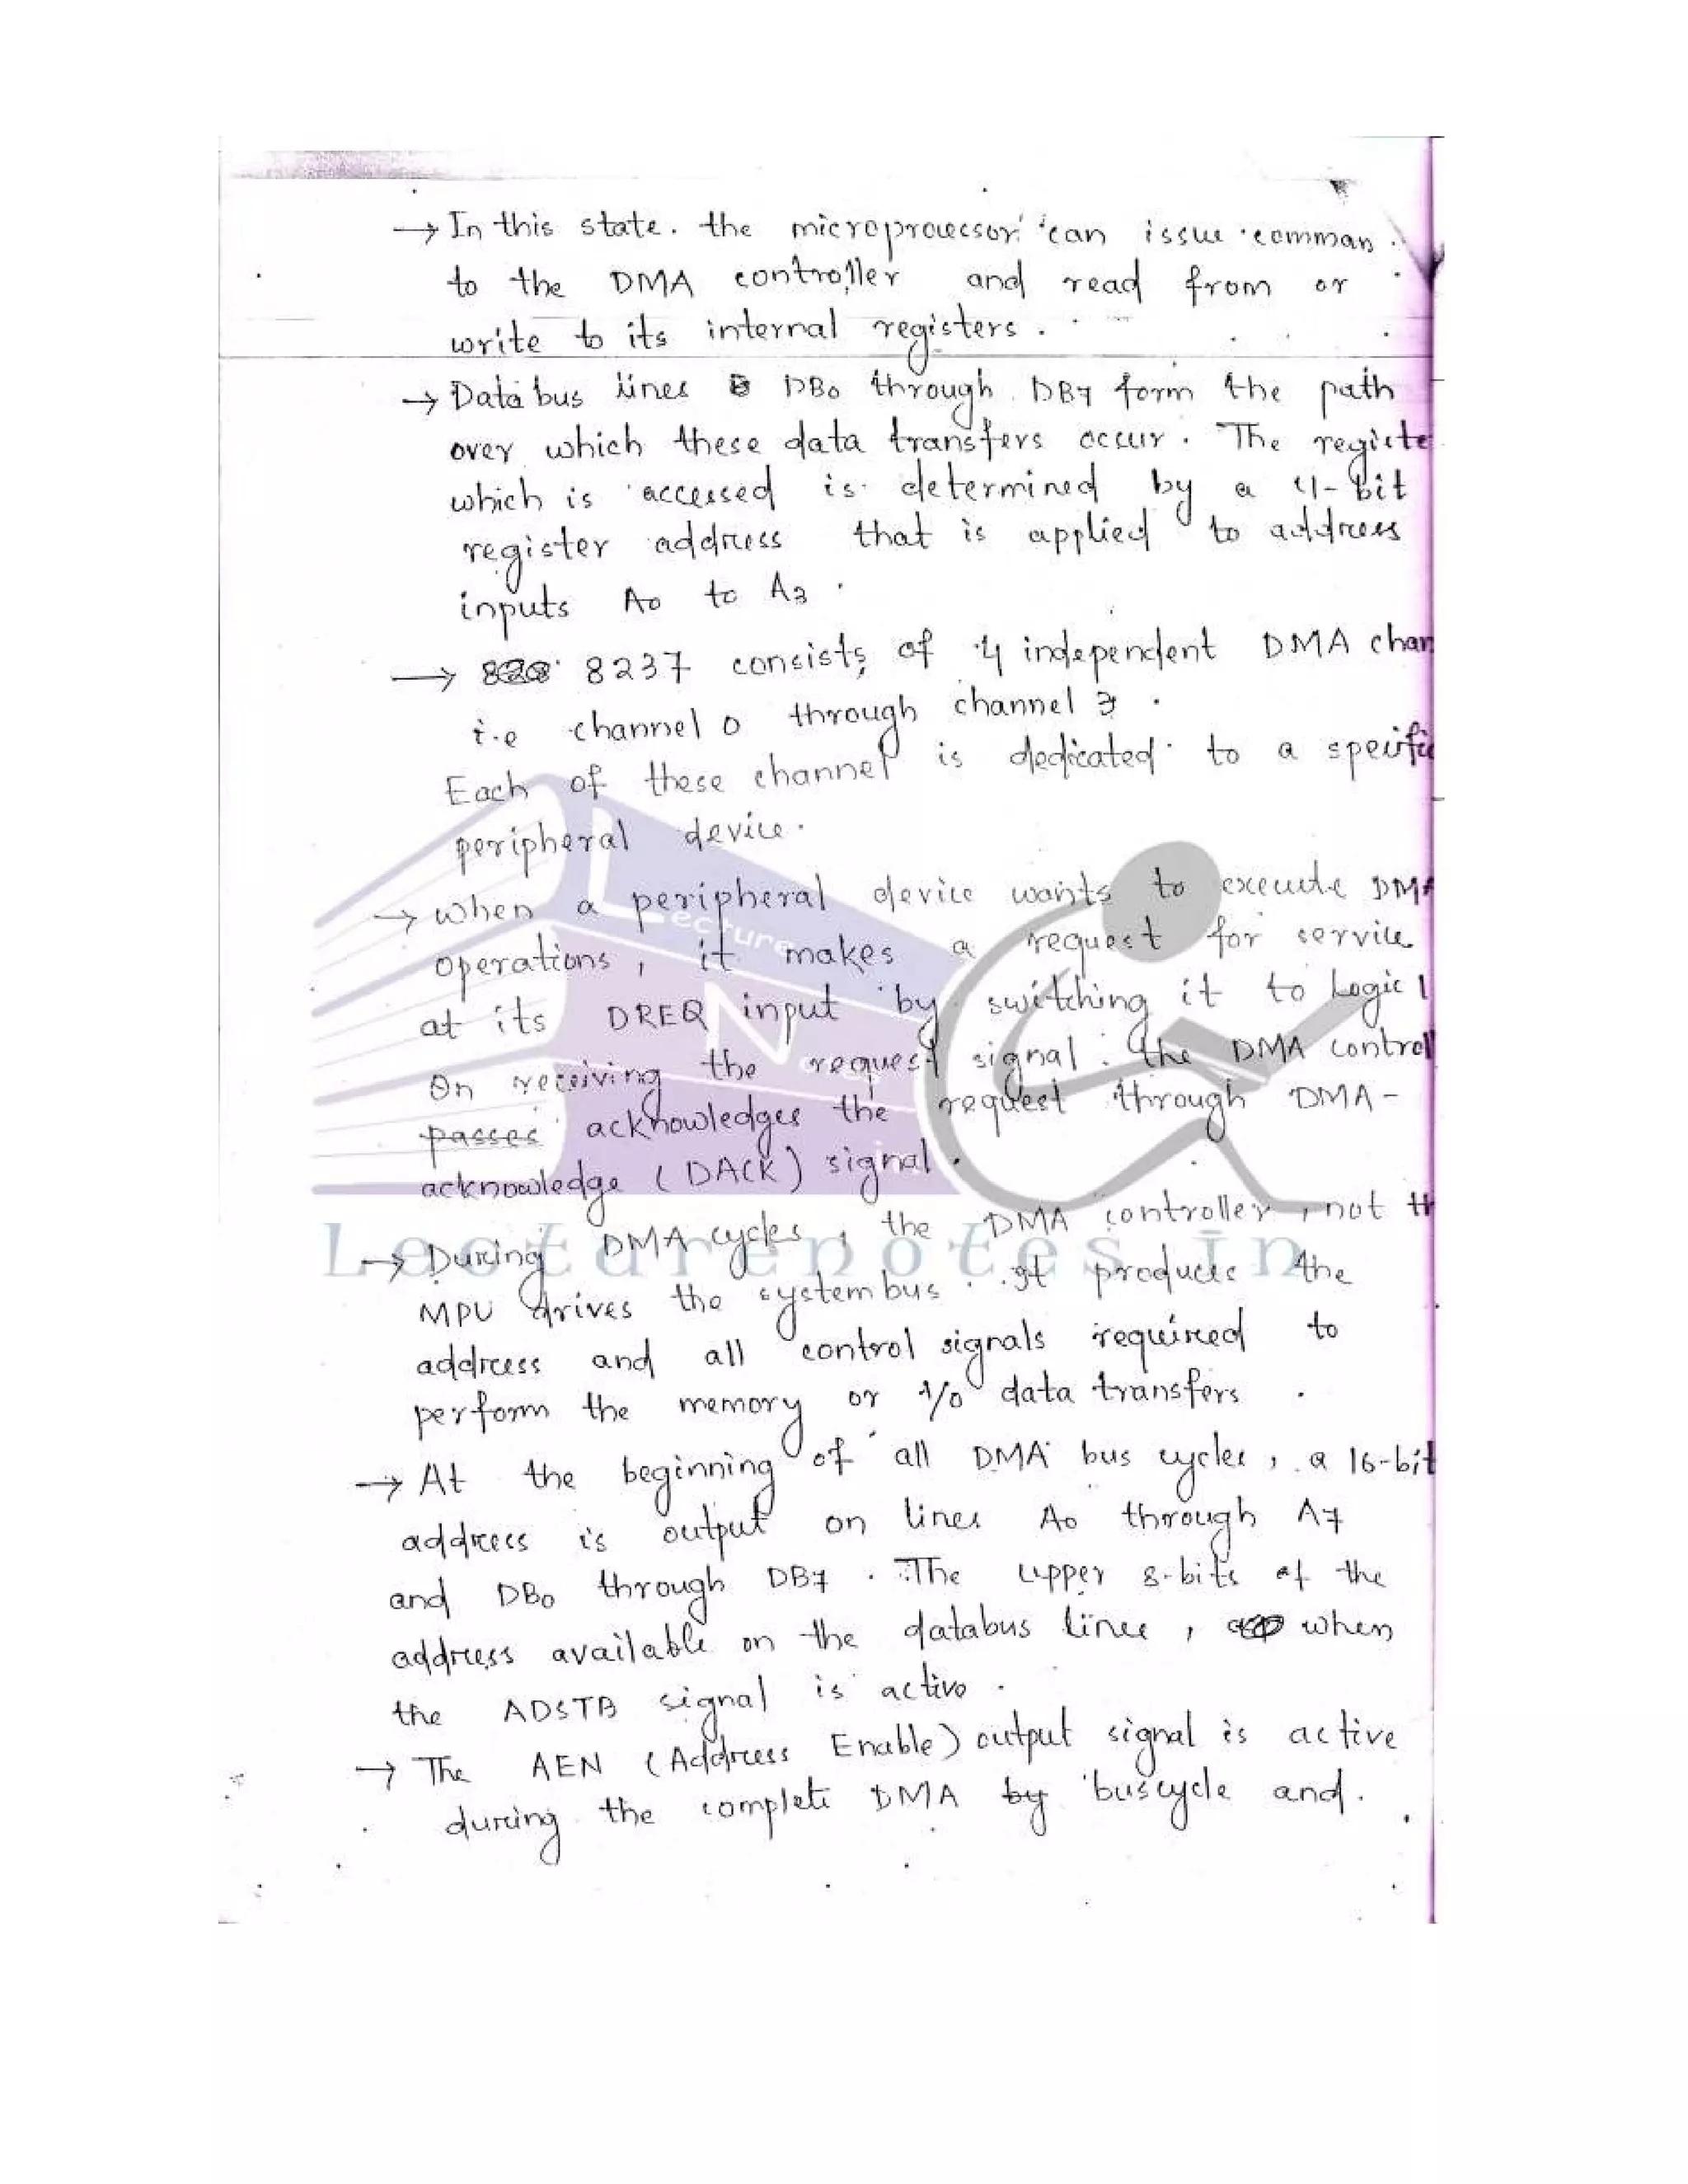 → In this state. the microprocessor can issue comman
to the DMA controller and read from or
write to its internal registers.
→ Data bus lines DB0 through DB7 form the path
over which these data transfers occur. The registe
which is accessed is determined by a 4-bit
register address that is applied to address
inputs A0 to A3.
→ 8237 consists of 4 independent DMA chan
i.e channel 0 through channel 3.
Each of these channel is dedicated to a specific
peripheral device.
→ When a peripheral device wants to execute DMA
operations, it makes a request for service
at its DREQ input by switching it to Logic 1
On receiving the request signal. the DMA control
passes acknowledges the request through DMA-
acknowledge (DACK) signal.
→ During DMA cycles, the DMA controller, not th
MPU drives the system bus. It produces the
address and all control signals required to
perform the memory or I/O data transfers.
→ At the beginning of all DMA bus cycles, a 16-bit
address is output on lines A0 through A7
and DB0 through DB7. The upper 8-bits of the
address available on the databus lines, when
the ADSTB signal is active.
→ The AEN (Address Enable) output signal is active
during the complete DMA by buscycle and.
Lecture
Notes
.in
Lecturenotes.in